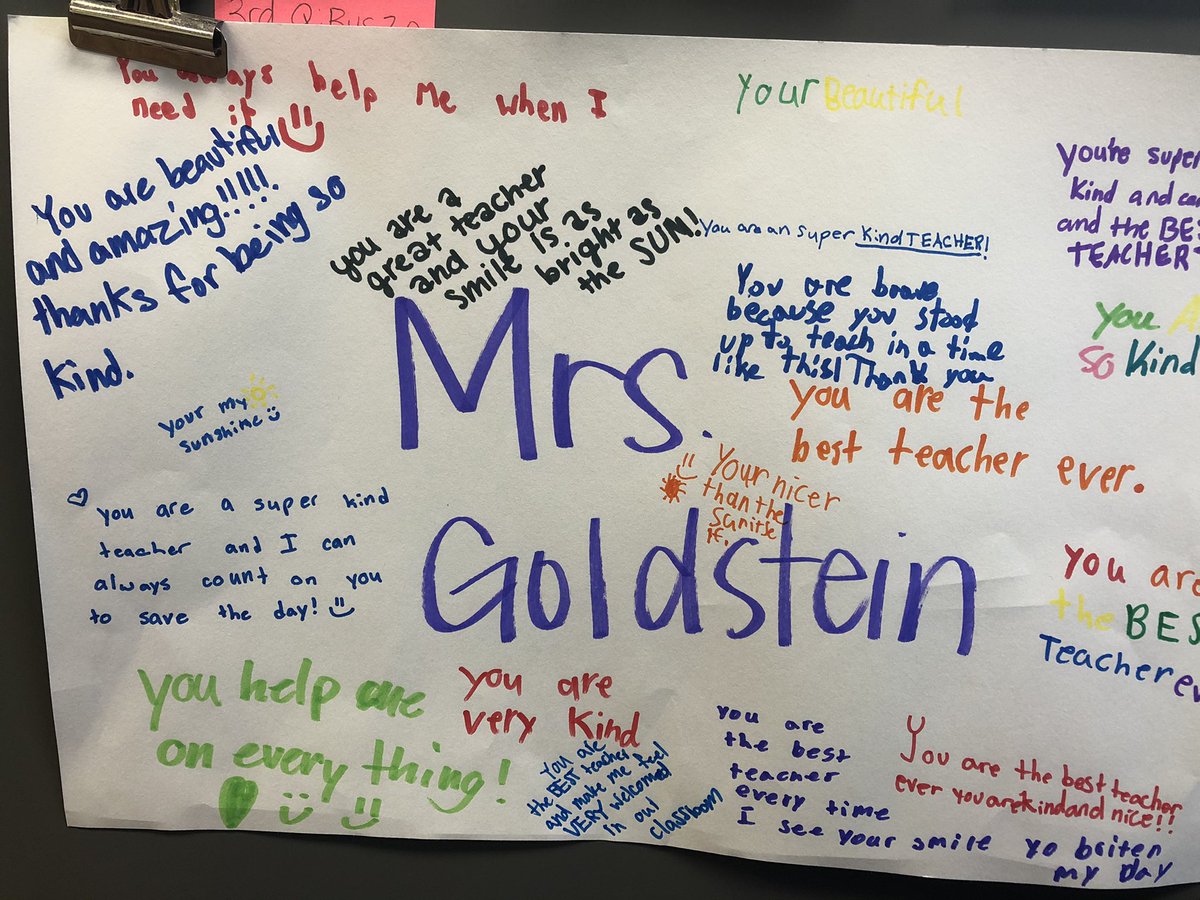 3rd Q:
You always help Me when I
need it
Your Beautiful
You are beautiful
and amazing!!!!!.
thanks for being so
kind.
you are a
great teacher
and your
smile is as
bright as
the SUN!
You are an super kind TEACHER!
you're super
kind and
and the
TEACHER
You are brave
because you stood
up to teach in a time
like this! Thank you
you
so Kind
your my
sunshime
Mrs.
Goldstein
you are the
best teacher ever.
Your nicer
than the
you are a super kind
teacher and I can
always count on you
to save the day!
you are
the
Teacher
you help
on every thing!
you are
very kind
you are
the BEST teacher
and make me feel
VERY welcomed
in our
classroom
you are
the best
teacher
every time
I see your smile yo briten
my day
You are the best teacher
ever you are kind and nice!!